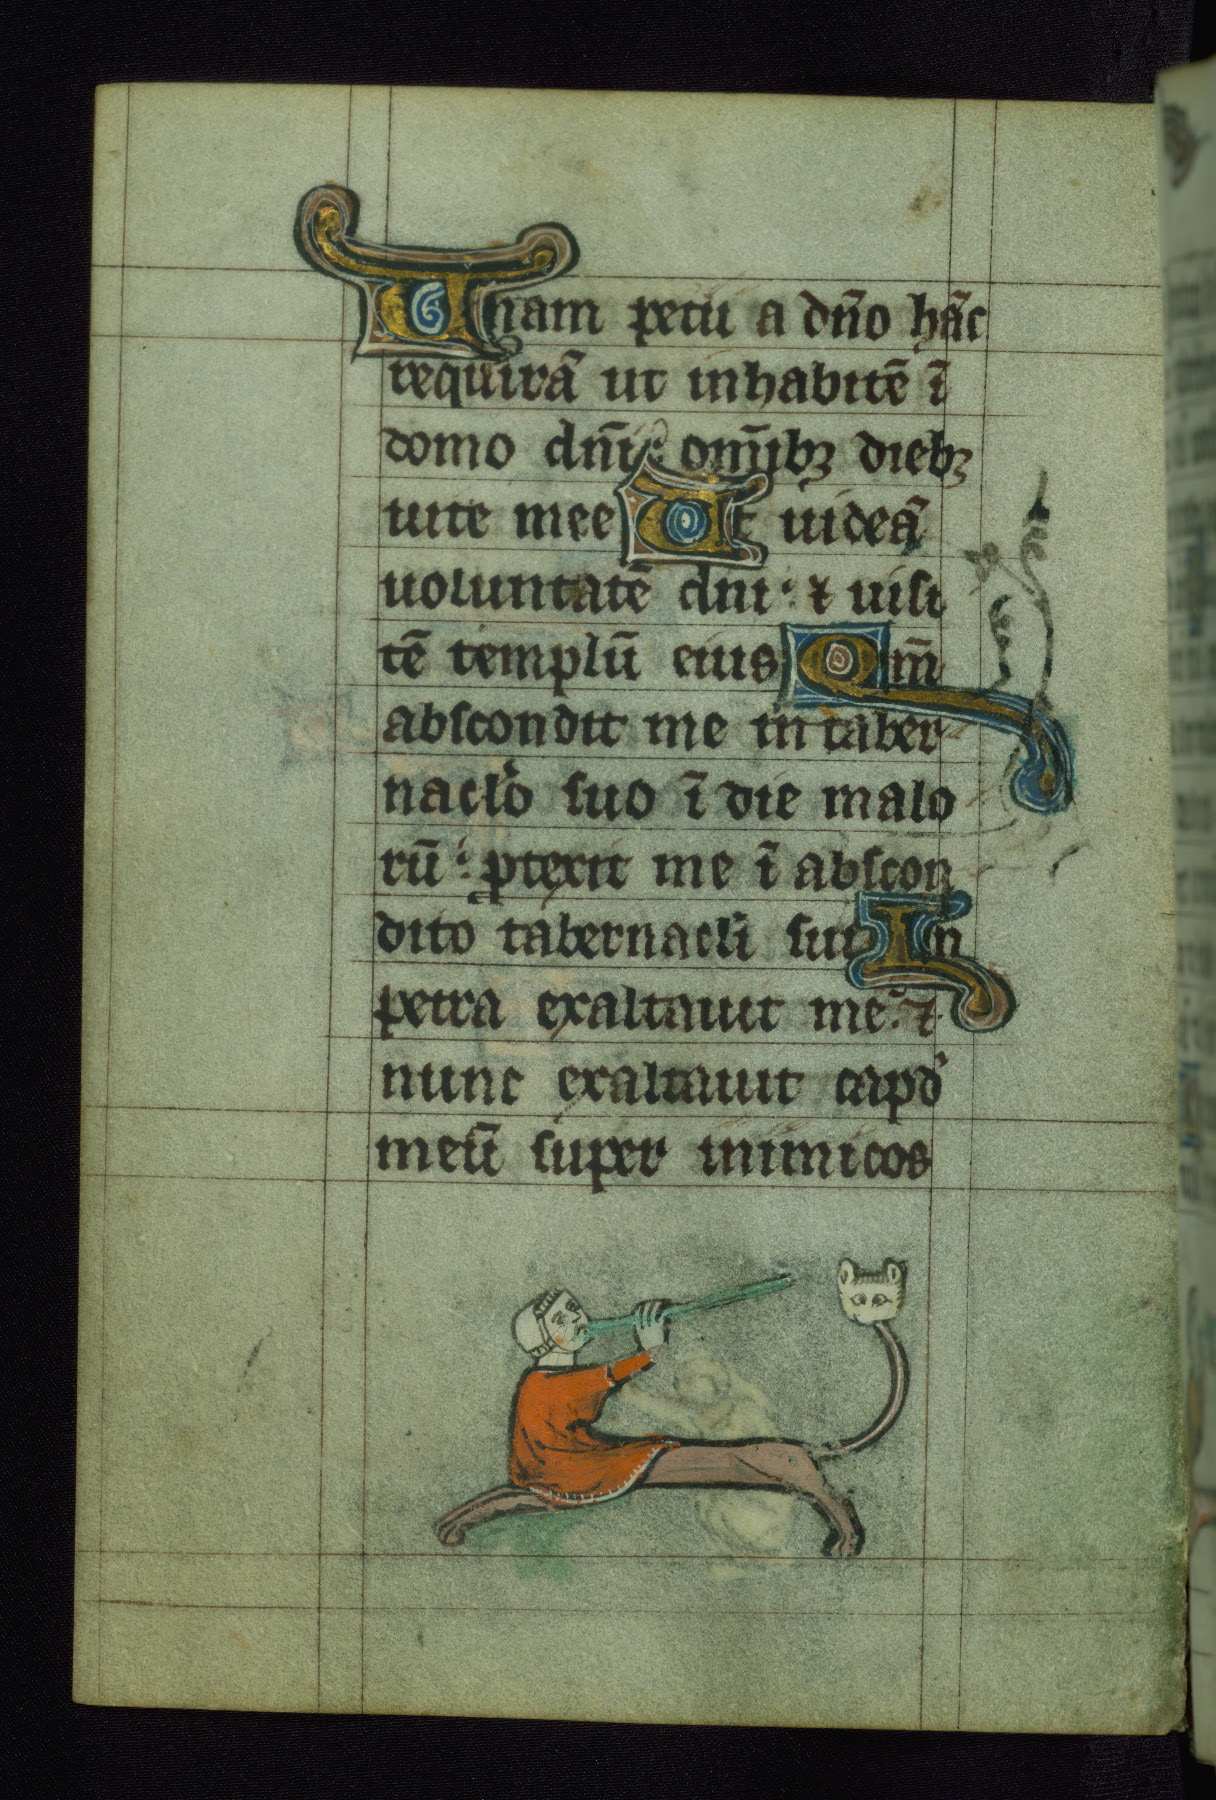 Unam petii a dño hãc
requirã ut inhabitẽ ĩ
domo dñi: om̃ibꝫ diebꝫ
uite mee Ut uideã
uoluntatẽ dñi: ⁊ uisi
tẽ templũ eius Qm̃
abscondit me in taber
naclo suo ĩ die malo
rũ: ꝓtexit me ĩ abscon
dito tabernacli sui In
petra exaltauit me: ⁊
nunc exaltauit capđ
meũ super inimicos